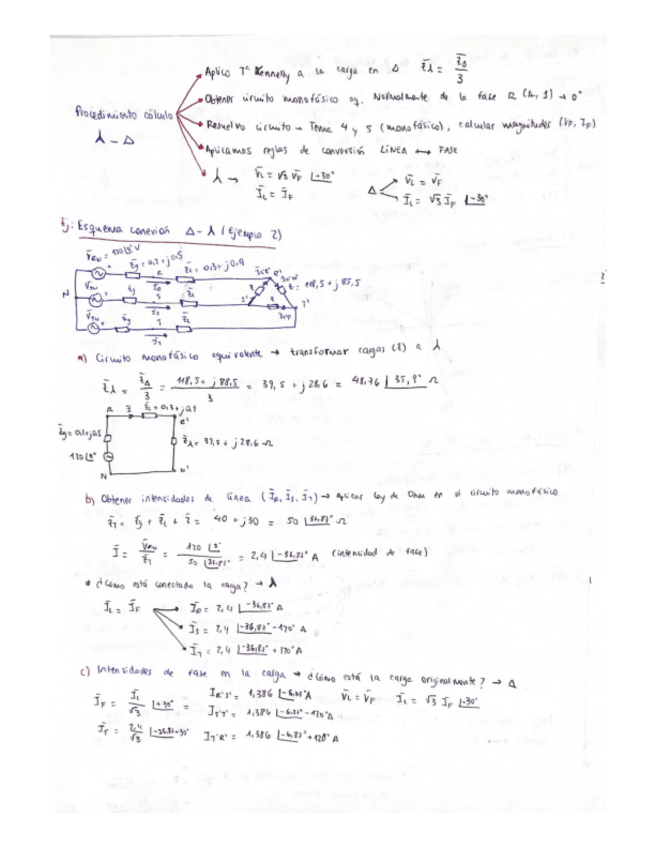 Aplico T° Kennelly a la carga en Δ Z̄⅄ = Z̄Δ / 3
Procedimiento cálculo ⅄ - Δ
Obtener circuito monofásico eq. Normalmente de la fase R (A, 1) → 0°
Resuelvo circuito → Tema 4 y 5 (monofásico), calcular magnitudes (VF, IF)
Aplicamos reglas de conversión LÍNEA ↔ FASE
⅄ → V̄L = √3 V̄F |+30° Δ V̄L = V̄F
ĪL = ĪF ĪL = √3 ĪF |-30°
Ej: Esquema conexión Δ - ⅄ (Ejemplo 2)
V̄RN = 120|0° V
Z̄g = 0,2 + j0,5 Z̄L = 0,3 + j0,9
Z̄ = 118,5 + j 85,5
a) Circuito monofásico equivalente → transformar cargas (Z̄) a ⅄
Z̄⅄ = Z̄Δ / 3 = 118,5 + j 88,5 / 3 = 39,5 + j 28,6 = 48,76 |35,9° Ω
R Ī Z̄L = 0,3 + j0,9 R'
Z̄⅄ = 39,5 + j 28,6 Ω
120|0°
N N'
b) Obtener intensidades de línea (ĪR, ĪS, ĪT) → Aplicar Ley de Ohm en el circuito monofásico
Z̄T = Z̄g + Z̄L + Z̄ = 40 + j 30 = 50 |36,87° Ω
Ī = V̄RN / Z̄T = 120 |0° / 50 |36,87° = 2,4 |-36,87° A (intensidad de fase)
* ¿Cómo está conectada la carga? → ⅄
ĪL = ĪF ĪR = 2,4 |-36,87° A
ĪS = 2,4 |-36,87° -120° A
ĪT = 2,4 |-36,87° + 120° A
c) Intensidades de fase en la carga → ¿Cómo está la carga originalmente? → Δ
ĪF = ĪL / √3 |+30° = IR'S' = 1,386 |-6,87° A V̄L = V̄F ĪL = √3 ĪF |-30°
IS'T' = 1,386 |-6,87° -120° A
ĪF = 2,4 / √3 |-36,87+30° IT'R' = 1,386 |-6,87° +120° A